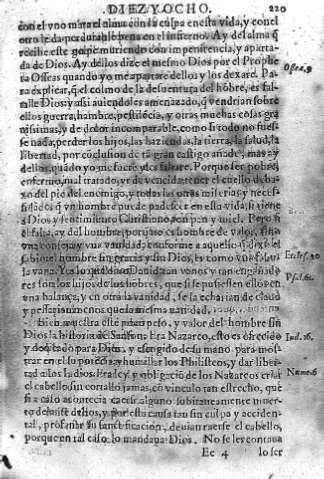 DIEZ Y OCHO. 220
con el vno mata el alma con la culpa en esta vida, y con el
otro le da perdurable pena en el infierno. Ay del alma q̃
recibe este golpe muriendo con impenitencia, y aparta-
da de Dios. Ay dellos dize el mesmo Dios por el Propheta
Oseas quando yo me apartare dellos y los dexare. Pa- Osee. 9
ra explicar, q̃ el colmo de la desuentura del hõbre, es fal-
talle Dios: y assi auiendoles amenazado, q̃ vendrian sobre
ellos guerra, hambre, pestilẽcia, y otras muchas cosas gra
uissimas, y de dolor incomparable, como si todo no fues-
se nada, perder los hijos, las haziendas, la tierra, la salud, la
libertad, por cõclusion de tã gran castigo añade, mas ay
dellos, quando yo me fuere y les faltare. Porque ser pobre,
enfermo, mal tratado, y de vencida tener el cuello deba-
xo del pie del enemigo, y todas las otras miserias y neces-
sidades q̃ vn hombre puede padecer en esta vida, si tiene
a Dios y sentimiento Christiano, son pan y miel. Pero si
el falta, ay del hombre, porque es hombre de valor,
vna vanidad, conforme a aquello q̃ dixo el
sabio: el hombre sin gracia y sin Dios, es como Eccles. 20
la vana. Dauid vanos y tan engañado Psal. 61
res son los hijos de los hombres, que si se pusiessen ellos en
vna balança, y en otra la vanidad, se la echarian de
y pessarian menos que la mesma vanidad.
Bien muestra este poco peso, y valor del hombre sin
Dios la historia de Sanson: Era Nazareo, esto es ofrecido Iud. 16.
y dedicado para Dios, y escogido de su mano para mos-
trar en el su potencia, humillar los Philisteos, y dar liber-
tad a los Iudios. Era ley y obligacion de los Nazareos criar Nume. 6
el cabello, sin cortallo jamas, cõ vinculo tan estrecho, que
si a caso acontecia caerse alguno subitamente muer-
to delante dellos, y por esta causa tan sin culpa y acciden-
tal, profanar su sanctificacion, deuian raerse el cabello,
porque en tal caso lo mandaua Dios. No se les contaua
Ee 4 lo ser